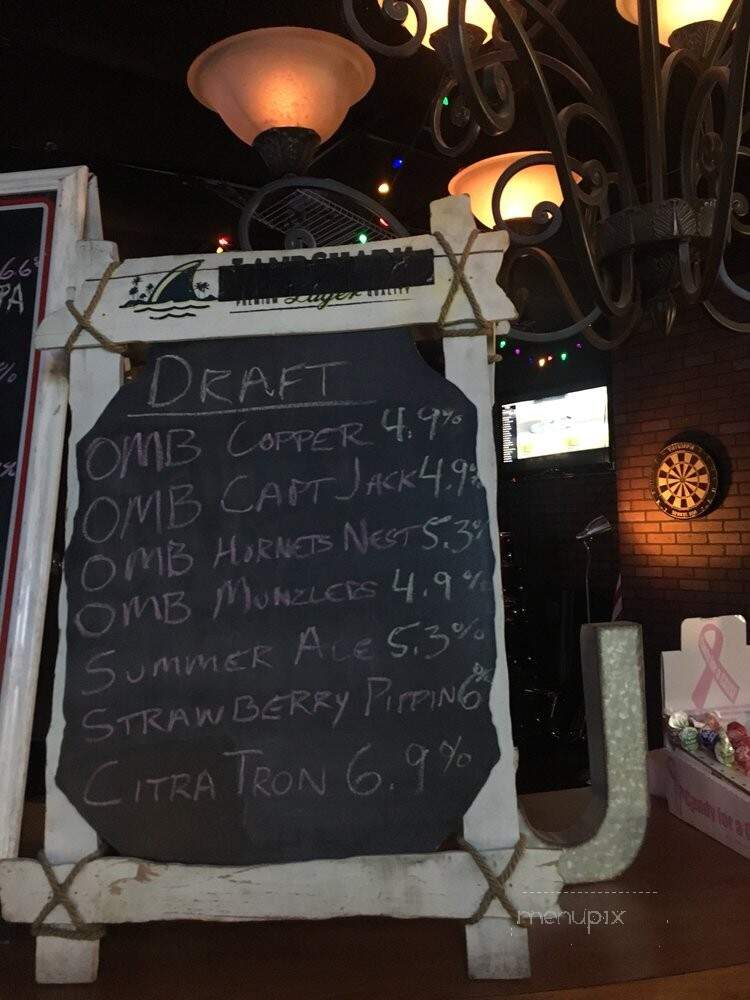 LANDSHARK
Lager
DRAFT
OMB COPPER 4.9%
OMB CAPT JACK 4.9%
OMB HORNETS NEST 5.3%
OMB MUNZLERS 4.9%
SUMMER ALE 5.3%
STRAWBERRY PIPPIN 6%
CITRA TRON 6.9%
PA
menupix